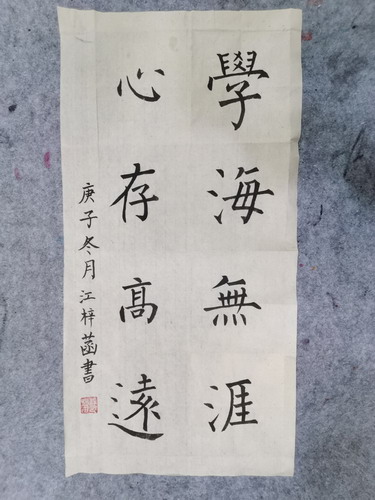 學海無涯
心存高遠
庚子冬月江梓菡書